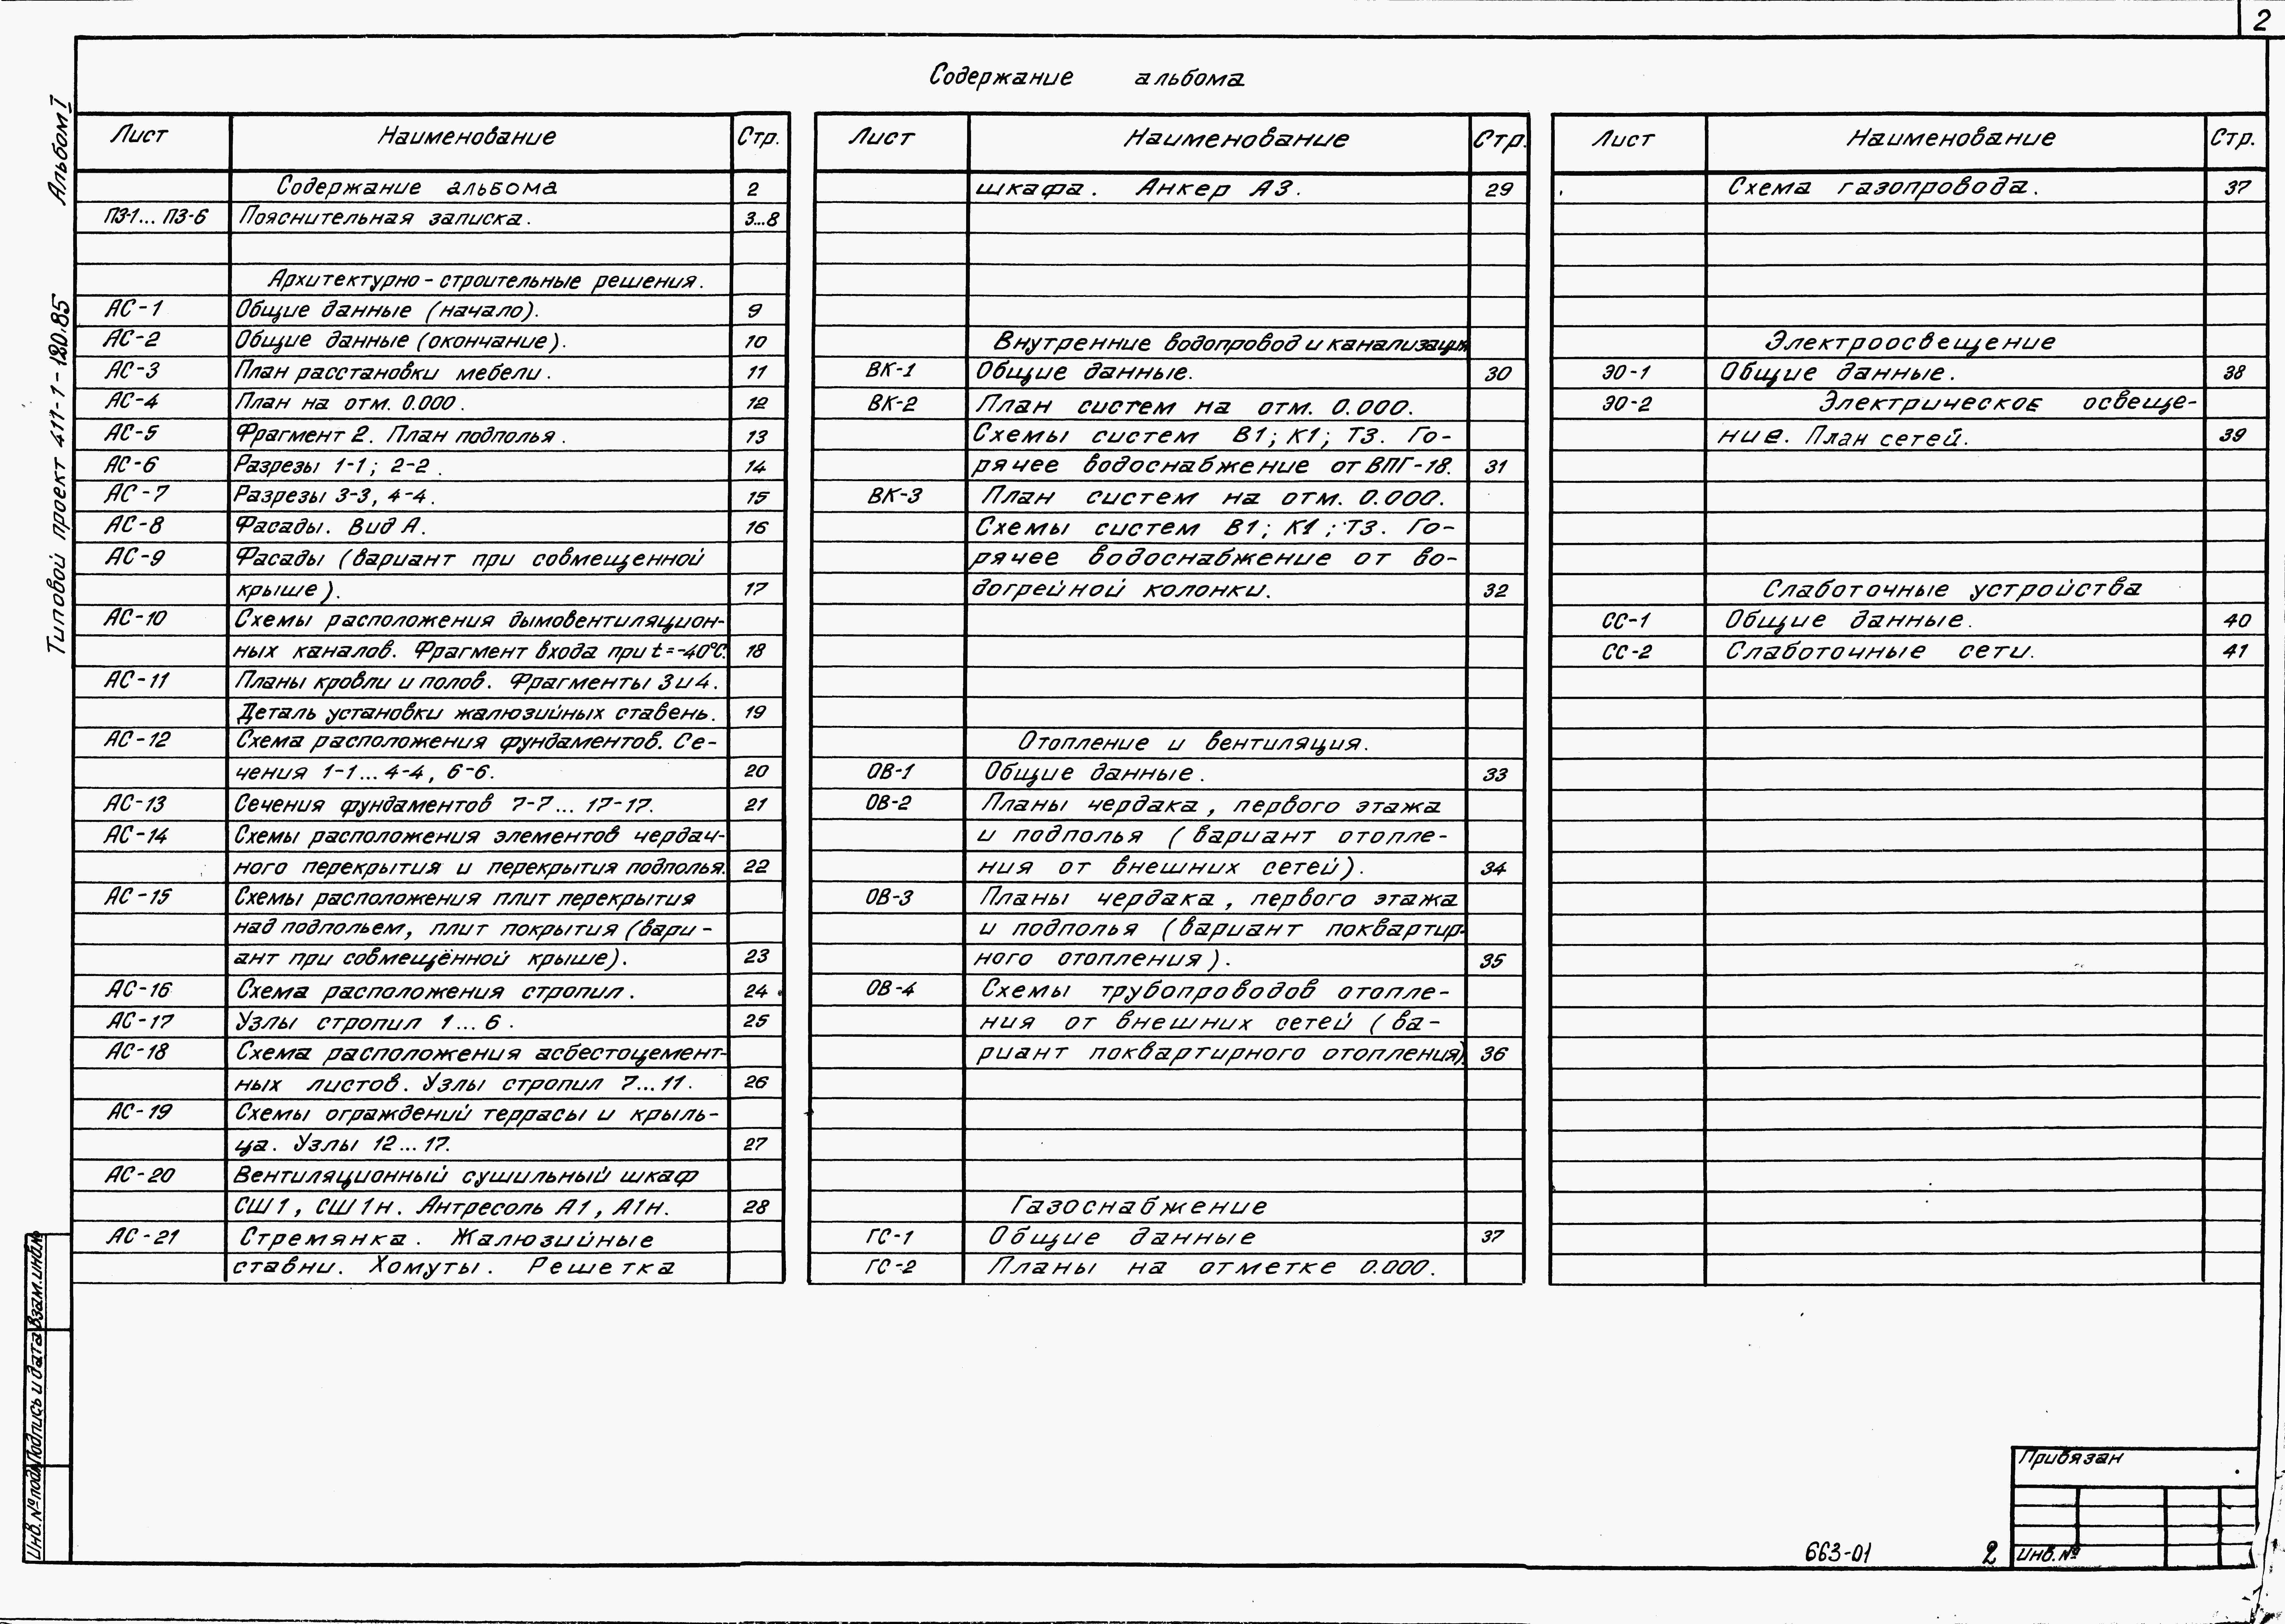 2
Содержание альбома
Альбом I
Типовой проект 411-1-120.85
Лист Наименование Стр.
Содержание альбома 2
ПЗ-1... ПЗ-6 Пояснительная записка. 3...8
Архитектурно-строительные решения.
АС-1 Общие данные (начало). 9
АС-2 Общие данные (окончание). 10
АС-3 План расстановки мебели. 11
АС-4 План на отм. 0.000. 12
АС-5 Фрагмент 2. План подполья. 13
АС-6 Разрезы 1-1; 2-2. 14
АС-7 Разрезы 3-3, 4-4. 15
АС-8 Фасады. Вид А. 16
АС-9 Фасады (вариант при совмещенной
крыше). 17
АС-10 Схемы расположения дымовентиляцион-
ных каналов. Фрагмент входа при t=-40°С. 18
АС-11 Планы кровли и полов. Фрагменты 3 и 4.
Деталь установки жалюзийных ставень. 19
АС-12 Схема расположения фундаментов. Се-
чения 1-1... 4-4, 6-6. 20
АС-13 Сечения фундаментов 7-7... 17-17. 21
АС-14 Схемы расположения элементов чердач-
ного перекрытия и перекрытия подполья. 22
АС-15 Схемы расположения плит перекрытия
над подпольем, плит покрытия (вари-
ант при совмещённой крыше). 23
АС-16 Схема расположения стропил. 24
АС-17 Узлы стропил 1...6. 25
АС-18 Схема расположения асбестоцемент-
ных листов. Узлы стропил 7...11. 26
АС-19 Схемы ограждений террасы и крыль-
ца. Узлы 12...17. 27
АС-20 Вентиляционный сушильный шкаф
СШ1, СШ1н. Антресоль А1, А1н. 28
АС-21 Стремянка. Жалюзийные
ставни. Хомуты. Решетка
Лист Наименование Стр.
шкафа. Анкер А3. 29
Внутренние водопровод и канализация
ВК-1 Общие данные. 30
ВК-2 План систем на отм. 0.000.
Схемы систем В1; К1; Т3. Го-
рячее водоснабжение от ВПГ-18. 31
ВК-3 План систем на отм. 0.000.
Схемы систем В1; К1; Т3. Го-
рячее водоснабжение от во-
догрейной колонки. 32
Отопление и вентиляция.
ОВ-1 Общие данные. 33
ОВ-2 Планы чердака, первого этажа
и подполья (вариант отопле-
ния от внешних сетей). 34
ОВ-3 Планы чердака, первого этажа
и подполья (вариант поквартир-
ного отопления). 35
ОВ-4 Схемы трубопроводов отопле-
ния от внешних сетей (ва-
риант поквартирного отопления). 36
Газоснабжение
ГС-1 Общие данные 37
ГС-2 Планы на отметке 0.000.
Лист Наименование Стр.
Схема газопровода. 37
Электроосвещение
ЭО-1 Общие данные. 38
ЭО-2 Электрическое освеще-
ние. План сетей. 39
Слаботочные устройства
СС-1 Общие данные. 40
СС-2 Слаботочные сети. 41
Взам. инв. №
Подпись и дата
Инв. № подл.
Привязан
Инв. №
663-01 2